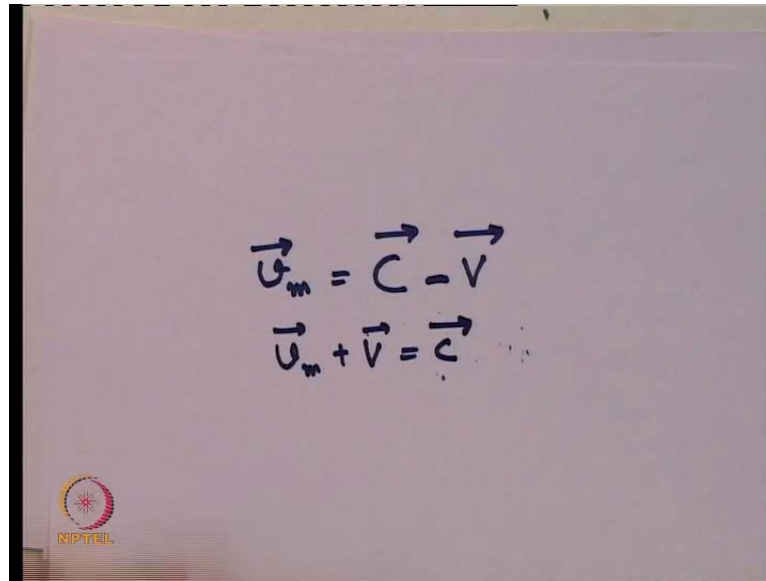 $\vec{v}_m = \vec{C} - \vec{V}$
$\vec{v}_m + \vec{V} = \vec{C}$
NPTEL